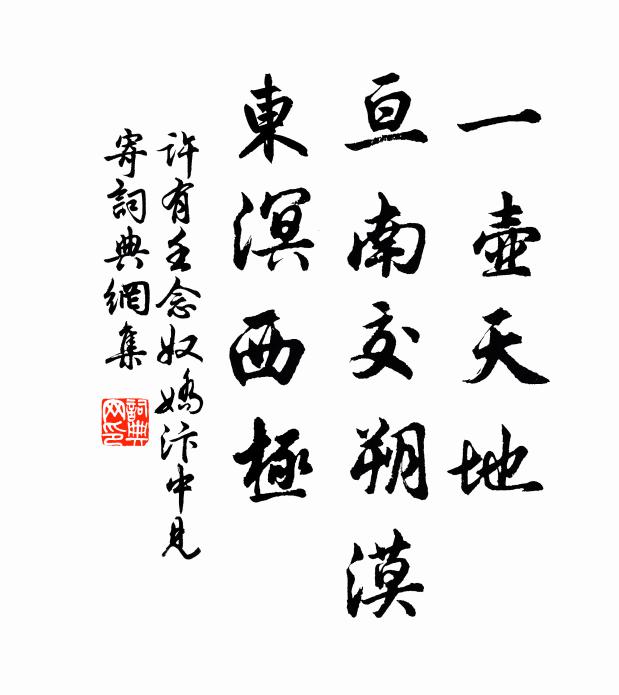 一壺天地
亘南交朔漠
東溟西極
許有壬念奴嬌汴中見
寄詞典網集
詞典
网印